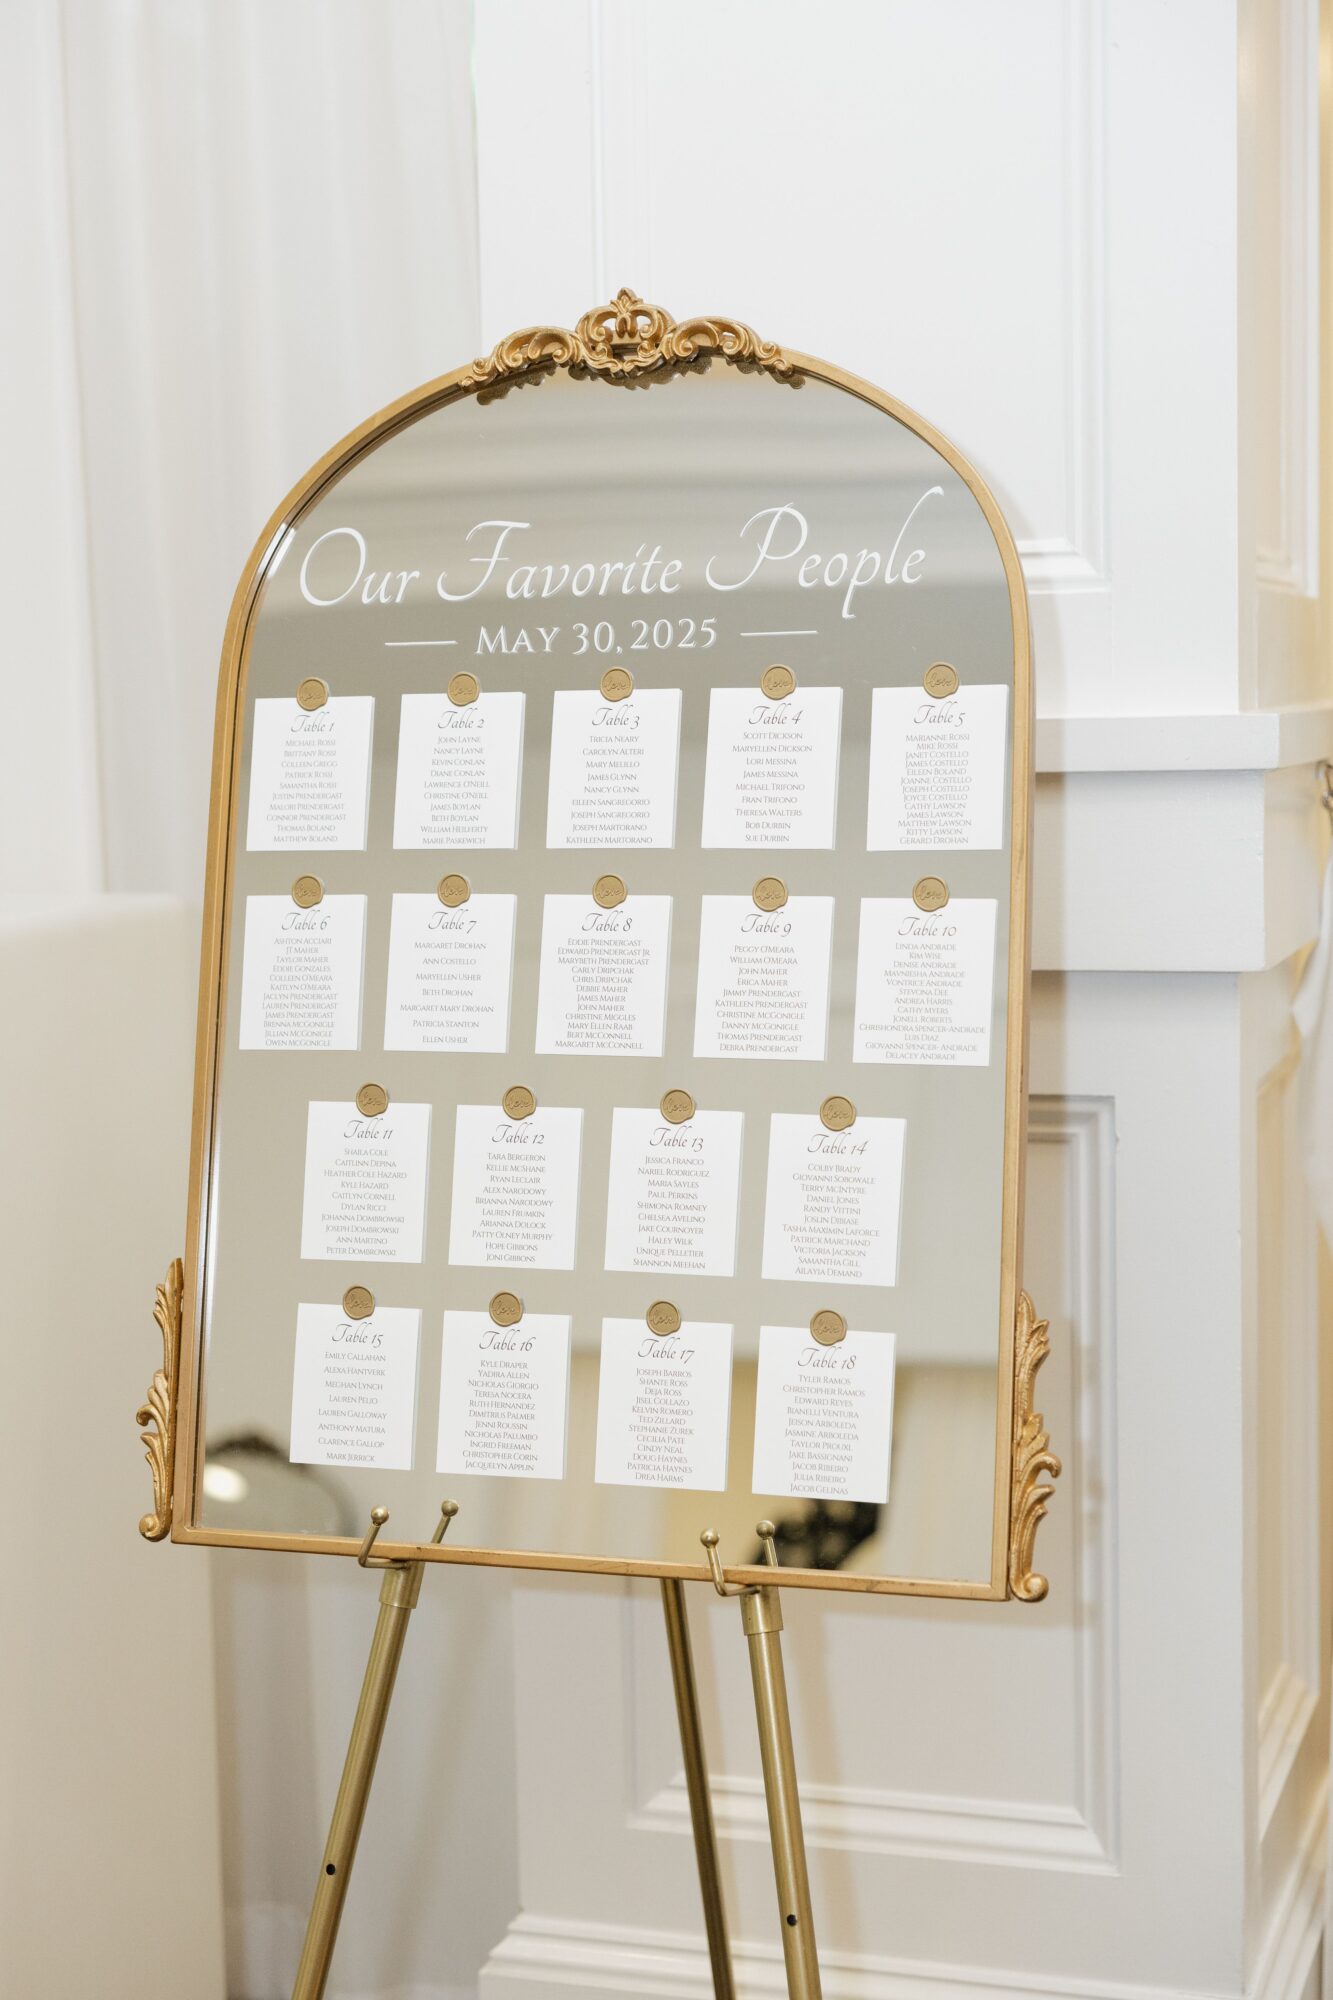 Our Favorite People
MAY 30, 2025
love
love
love
love
love
Table 1
MICHAEL ROSSI
BRITTANY ROSSI
COLLEEN GREGG
PATRICK ROSSI
SAMANTHA ROSSI
JUSTIN PRENDERGAST
MALORI PRENDERGAST
CONNOR PRENDERGAST
THOMAS BOLAND
MATTHEW BOLAND
Table 2
JOHN LAYNE
NANCY LAYNE
KEVIN CONLAN
DIANE CONLAN
LAWRENCE O'NEILL
CHRISTINE O'NEILL
JAMES BOYLAN
BETH BOYLAN
WILLIAM HEILFERTY
MARIE PASKEWICH
Table 3
TRICIA NEARY
CAROLYN ALTERI
MARY MELILLO
JAMES GLYNN
NANCY GLYNN
EILEEN SANGREGORIO
JOSEPH SANGREGORIO
JOSEPH MARTORANO
KATHLEEN MARTORANO
Table 4
SCOTT DICKSON
MARYELLEN DICKSON
LORI MESSINA
JAMES MESSINA
MICHAEL TRIFONO
FRAN TRIFONO
THERESA WALTERS
BOB DURBIN
SUE DURBIN
Table 5
MARIANNE ROSSI
MIKE ROSSI
JANET COSTELLO
JAMES COSTELLO
EILEEN BOLAND
JOANNE COSTELLO
JOSEPH COSTELLO
JOYCE COSTELLO
CATHY LAWSON
JAMES LAWSON
MATTHEW LAWSON
KITTY LAWSON
GERARD DROHAN
love
love
love
love
love
Table 6
ASHTON ACCIARI
JT MAHER
TAYLOR MAHER
EDDIE GONZALES
COLLEEN O'MEARA
KAITLYN O'MEARA
JACLYN PRENDERGAST
LAUREN PRENDERGAST
JAMES PRENDERGAST
BRENNA MCGONIGLE
JILLIAN MCGONIGLE
OWEN MCGONIGLE
Table 7
MARGARET DROHAN
ANN COSTELLO
MARYELLEN USHER
BETH DROHAN
MARGARET MARY DROHAN
PATRICIA STANTON
ELLEN USHER
Table 8
EDDIE PRENDERGAST
EDWARD PRENDERGAST JR.
MARYBETH PRENDERGAST
CARLY DRIPCHAK
CHRIS DRIPCHAK
DEBBIE MAHER
JAMES MAHER
JOHN MAHER
CHRISTINE MIGGLES
MARY ELLEN RAAB
BERT MCCONNELL
MARGARET MCCONNELL
Table 9
PEGGY O'MEARA
WILLIAM O'MEARA
JOHN MAHER
ERICA MAHER
JIMMY PRENDERGAST
KATHLEEN PRENDERGAST
CHRISTINE MCGONIGLE
DANNY MCGONIGLE
THOMAS PRENDERGAST
DEBRA PRENDERGAST
Table 10
LINDA ANDRADE
KIM WISE
DENISE ANDRADE
MAVNIESHA ANDRADE
VONTRICE ANDRADE
STEVONA DEE
ANDREA HARRIS
CATHY MYERS
JONELL ROBERTS
CHRISHONDRA SPENCER-ANDRADE
LUIS DIAZ
GIOVANNI SPENCER- ANDRADE
DELACEY ANDRADE
love
love
love
love
Table 11
SHAILA COLE
CAITLINN DEPINA
HEATHER COLE HAZARD
KYLE HAZARD
CAITLYN CORNELL
DYLAN RICCI
JOHANNA DOMBROWSKI
JOSEPH DOMBROWSKI
ANN MARTINO
PETER DOMBROWSKI
Table 12
TARA BERGERON
KELLIE MCSHANE
RYAN LECLAIR
ALEX NARODOWY
BRIANNA NARODOWY
LAUREN FRUMKIN
ARIANNA DOLOCK
PATTY OLNEY MURPHY
HOPE GIBBONS
JONI GIBBONS
Table 13
JESSICA FRANCO
NARIEL RODRIGUEZ
MARIA SAYLES
PAUL PERKINS
SHIMONA ROMNEY
CHELSEA AVELINO
JAKE COURNOYER
HALEY WILK
UNIQUE PELLETIER
SHANNON MEEHAN
Table 14
COLBY BRADY
GIOVANNI SOBOWALE
TERRY MCINTYRE
DANIEL JONES
RANDY VITTINI
JOSLIN DIBIASE
TASHA MAXIMIN LAFORCE
PATRICK MARCHAND
VICTORIA JACKSON
SAMANTHA GILL
AILAYIA DEMAND
love
love
love
love
Table 15
EMILY CALLAHAN
ALEXA HANTVERK
MEGHAN LYNCH
LAUREN PELIO
LAUREN GALLOWAY
ANTHONY MATURA
CLARENCE GALLOP
MARK JERRICK
Table 16
KYLE DRAPER
YADIRA ALLEN
NICHOLAS GIORGIO
TERESA NOCERA
RUTH HERNANDEZ
DIMITRIUS PALMER
JENNI ROUSSIN
NICHOLAS PALUMBO
INGRID FREEMAN
CHRISTOPHER CORIN
JACQUELYN APPLIN
Table 17
JOSEPH BARROS
SHANTE ROSS
DEJA ROSS
JISEL COLLAZO
KELVIN ROMERO
TED ZILLARD
STEPHANIE ZUREK
CECILIA PATE
CINDY NEAL
DOUG HAYNES
PATRICIA HAYNES
DREA HARMS
Table 18
TYLER RAMOS
CHRISTOPHER RAMOS
EDWARD REYES
BIANELLI VENTURA
JEISON ARBOLEDA
JASMINE ARBOLEDA
TAYLOR PROUXL
JAKE BASSIGNANI
JACOB RIBEIRO
JULIA RIBEIRO
JACOB GELINAS